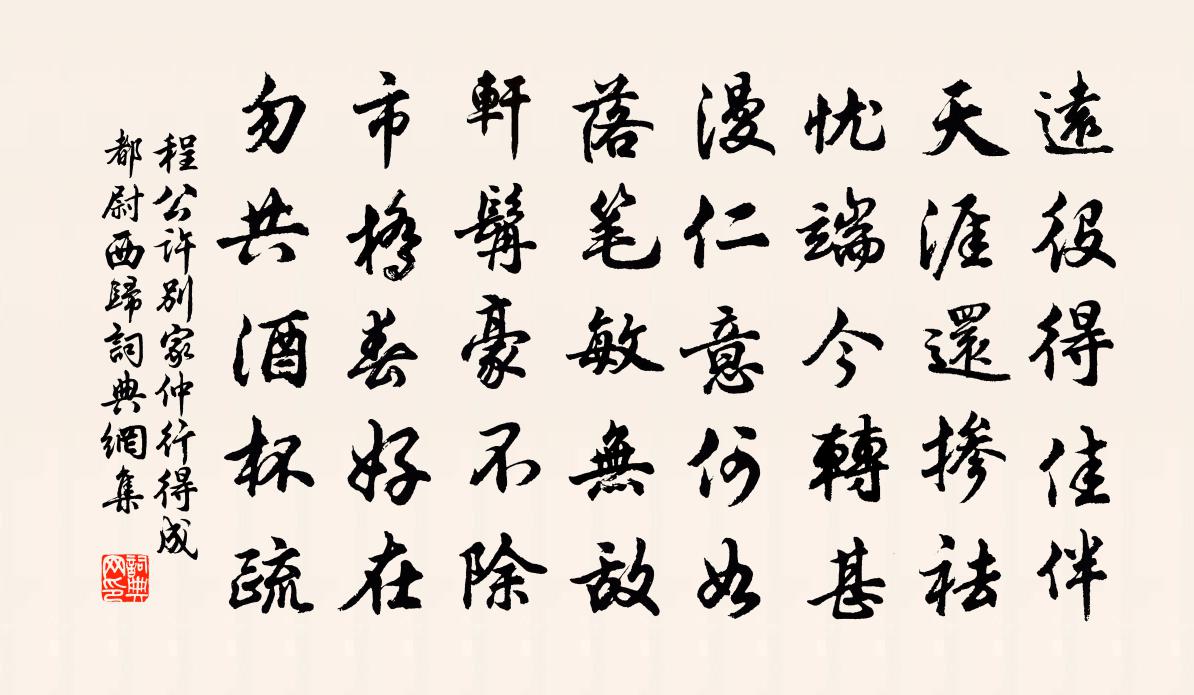 遠役得佳伴
天涯還摻袪
忧端今轉甚
漫仁意何如
落笔敏無敌
軒髯豪不除
市橋春好在
勿共酒杯疏
程公許別家仲行得成
都尉西歸詞典網集
詞典
网印